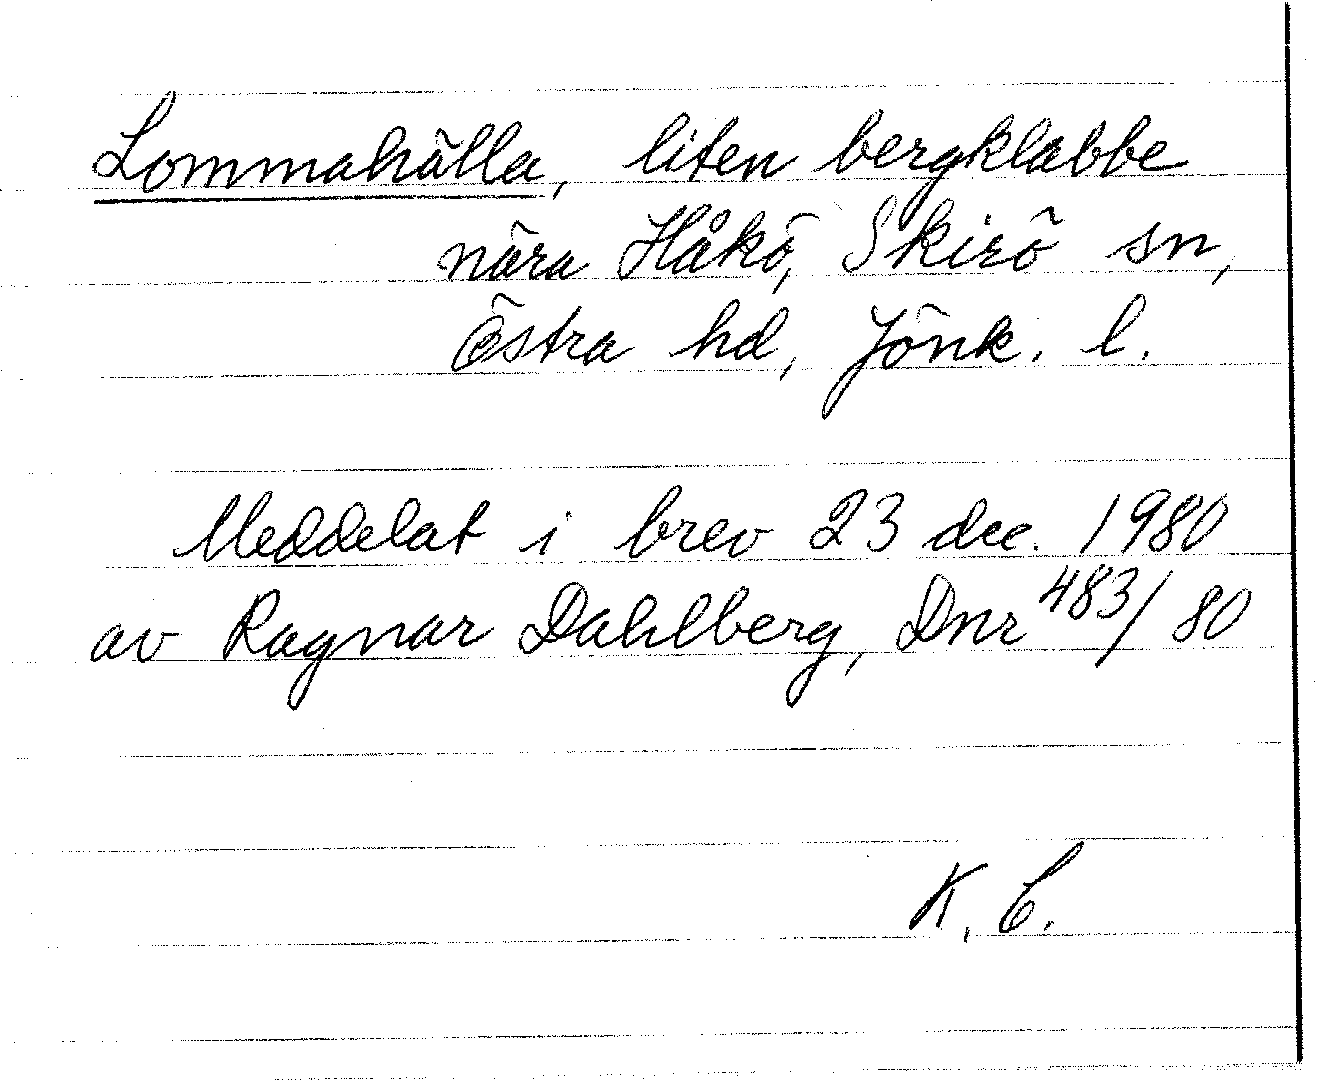 Lommahälla, liten bergklabbe
nära Håkö, Skirö sn,
Östra hd, Jönk. l.
Meddelat i brev 23 dec. 1980
av Ragnar Dahlberg, Dnr 483/80
K. C.